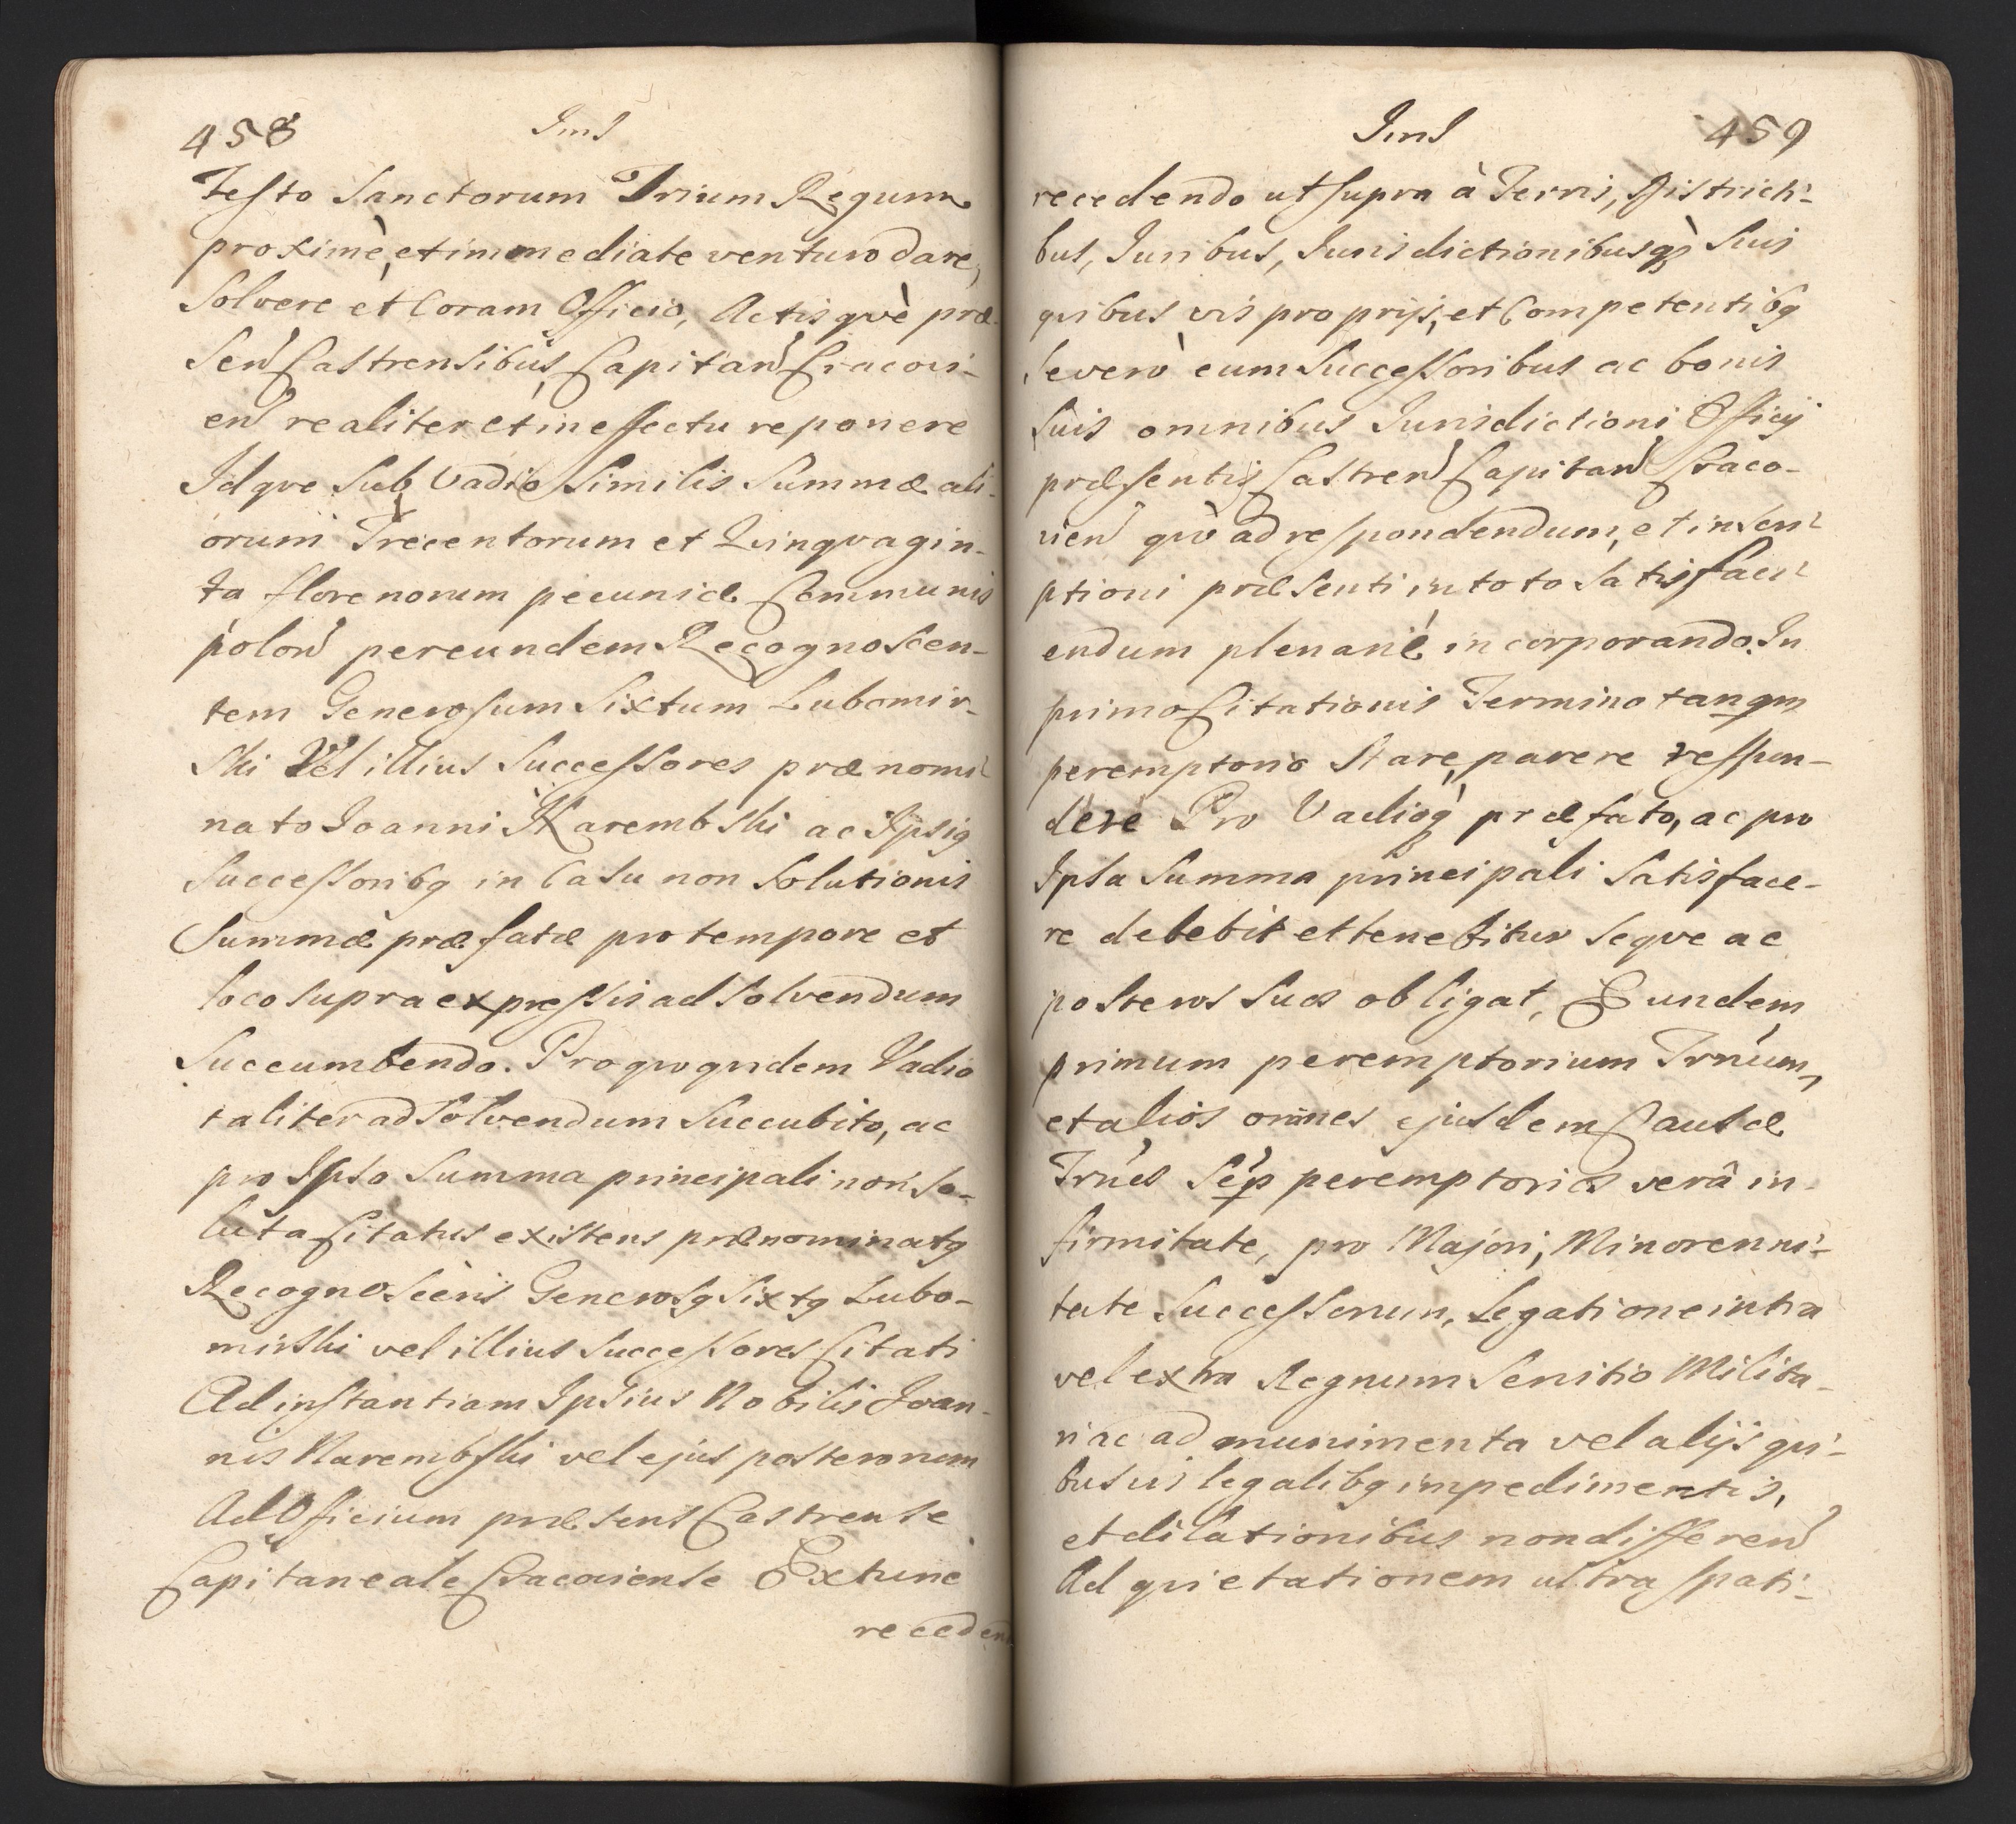 458
Festo Sanctorum Trium Regum
proximè, et immediate venturo dare,
Solvere et Coram Officio, Actisqvè præ-
Sen Castrensibus Capitan Cracovi-
en realiter et in effectu reponere
Idqve Sub Vadio Similis Summæ ali-
orum Trecentorum et Qvinqvagin-
ta florenorum pecuniæ Communis
polon per eundem Recognoscen-
tem Generosum Sixtum Lubomir-
ski Vel illius Successores prænomi-
nato Joanni Karembski ac Ipsiq
Successoribq in Casu non Solutionis
Summæ præfatæ pro tempore et
loco supra expressis ad Solvendum
Succumbendo. Pro qvo qvidem Vadio
taliter ad Solvendum Succubito, ac
pro Ipsa Summa principali non so-
luta Citatus existens prænominatq
Recognoscens Generosq Sixtq Lubo-
mirski vel illius Successores Citati
Ad instantiam Ipsius Nobilis Joan-
nis Karembski vel ejus posterorum
Ad Officium præsens Castrense
Capitaneale Cracoviense Extunc
recedendo
459
recedendo ut supra à Terris, Districti-
bus, Juribus, Jurisdictionibusqè Suis
qvibus vis proprijs, et Competentibq
Severò cum Successoribus ac bonis
Suis omnibus Jurisdictioni Officij
præsentis Castren Capitan Craco-
vien qvò ad respondendum, et inscri-
ptioni præsenti in toto Satisfaci-
endum plenariè incorporando. In
primo Citationis Termino tanqm
peremptorio Stare, parere respon-
dere Pro Vadioq præfato, ac pro
Ipsa Summa principali Satisface-
re debebit et tenebitur Seqve ac
posteros Suos obligat, Eundem
primum peremptorium Trnum,
et alios omnes ejusdem Causæ
Trnos Sep peremptorios verâ in-
firmitate, pro Majori, Minorenni-
tate Successorum, Legatione intra
vel extra Regnum Servitio Milita-
ri ac ad munimenta vel alijs qvi-
busvis legalibq impedimentis,
et dilationibus non differen
Ad qvietationem ultra spati-